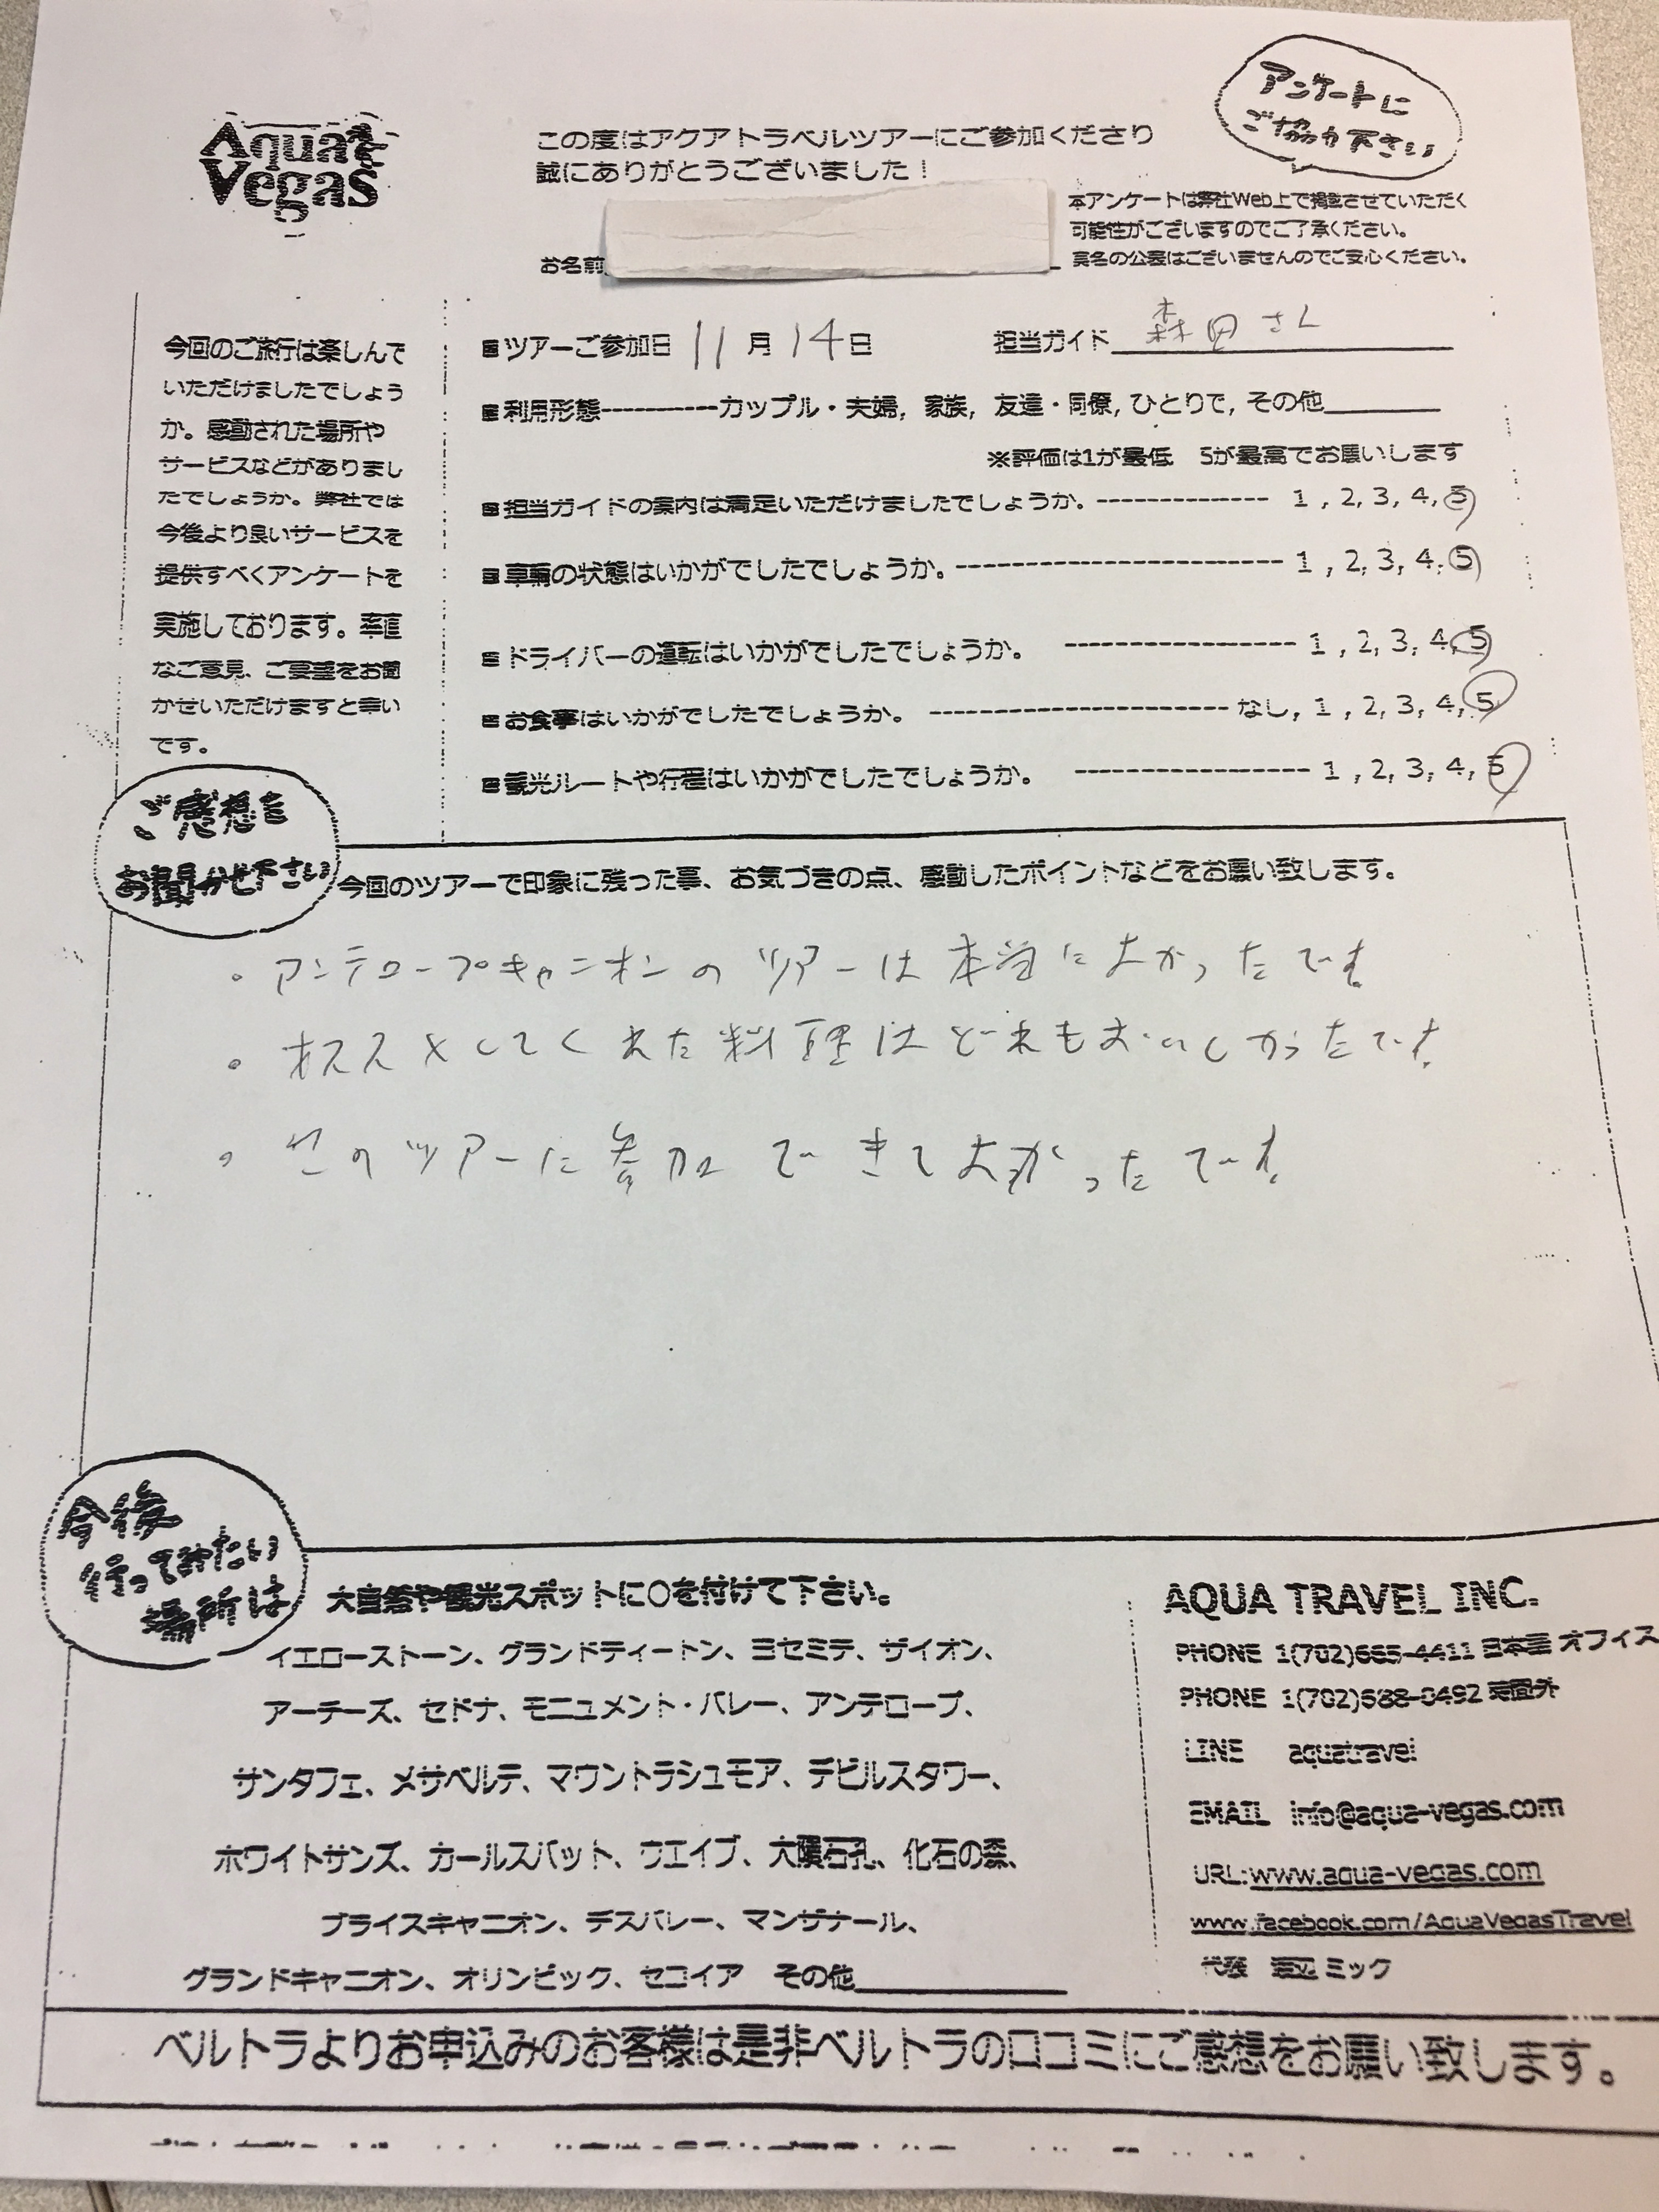 アンケートに
ご協力下さい
Aqua
Vegas
この度はアクアトラベルツアーにご参加くださり
誠にありがとうございました！
本アンケートは弊社Web上で掲載させていただく
可能性がございますのでご了承ください。
実名の公表はございませんのでご安心ください。
お名前
今回のご旅行は楽しんで
いただけましたでしょう
か。感動された場所や
サービスなどがありまし
たでしょうか。弊社では
今後より良いサービスを
提供すべくアンケートを
実施しております。率直
なご意見、ご要望をお聞
かせいただけますと幸い
です。
■ツアーご参加日 11月14日 担当ガイド 森田さん
■利用形態-----------カップル・夫婦, 家族, 友達・同僚, ひとりで, その他
※評価は1が最低 5が最高でお願いします
■担当ガイドの案内は満足いただけましたでしょうか。------------- 1 , 2, 3, 4, 5
■車輌の状態はいかがでしたでしょうか。------------------------- 1 , 2, 3, 4, 5
■ドライバーの運転はいかがでしたでしょうか。 ----------------- 1 , 2, 3, 4, 5
■お食事はいかがでしたでしょうか。 ---------------------- なし, 1 , 2, 3, 4, 5
■観光ルートや行程はいかがでしたでしょうか。 ----------------- 1 , 2, 3, 4, 5
ご感想を
お聞かせ下さい
今回のツアーで印象に残った事、お気づきの点、感動したポイントなどをお願い致します。
。アンテロープキャニオンのツアーは本当によかったです。
。オススメしてくれた料理はどれもおいしかったです。
。このツアーに参加できてよかったです。
今後
行ってみたい
場所は
大自然や観光スポットに○を付けて下さい。
イエローストーン、グランドティートン、ヨセミテ、ザイオン、
アーチーズ、セドナ、モニュメント・バレー、アンテロープ、
サンタフェ、メサベルデ、マウントラシュモア、デビルスタワー、
ホワイトサンズ、カールスバット、ウエイブ、大隕石孔、化石の森、
ブライスキャニオン、デスバレー、マンザナール、
グランドキャニオン、オリンピック、セコイア その他
AQUA TRAVEL INC.
PHONE 1(702)665-4411 日本語オフィス
PHONE 1(702)688-0492 時間外
LINE aquatravel
EMAIL info@aqua-vegas.com
URL:www.aqua-vegas.com
www.facebook.com/AquaVegasTravel
代表 渡辺ミック
ベルトラよりお申込みのお客様は是非ベルトラの口コミにご感想をお願い致します。